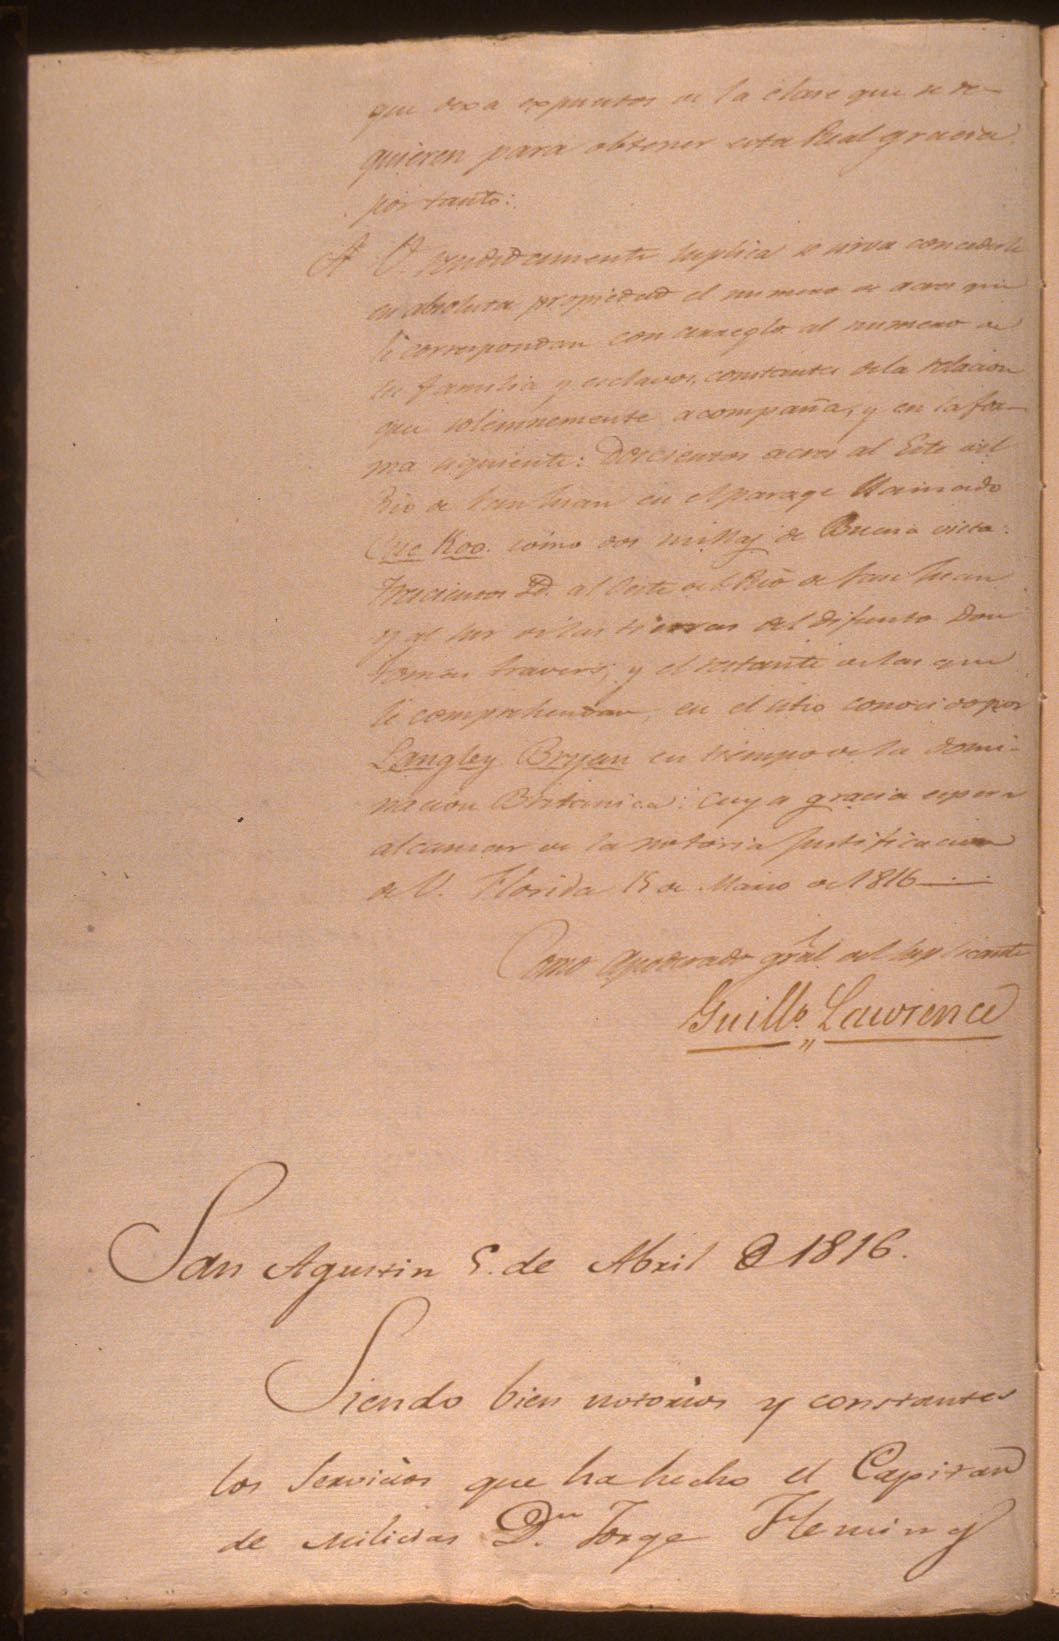 que dexa expuestos de la clase que se re-
quieren para obtener esta Real gracia
por tanto:
A V. rendidamente suplica se sirva concederle
en absoluta propiedad el numero de acres que
le correspondan con arreglo al numero de
su familia y esclavos, constantes de la relacion
que solemnemente acompaña, y en la for-
ma siguiente: Doscientos acres al Este del
Rio de San Juan en el parage llamado
Roo. como dos millas de Buena vista:
Trescientos Yd. al Oeste del Rio de San Juan
y al Sur de las tierras del difunto Don
Tomas Travers; y el restante de las que
le comprehendan, en el sitio conocido por
Langley Bryan en tiempo de la domi-
nacion Britanica: cuya gracia espera
alcanzar de la notoria Justificacion
de V. Florida 15 de Marzo de 1816
Como Apoderado gral del Suplicante
Guillo. Lawrence
San Agustin 5. de Abril de 1816.
Siendo bien notorios y constantes
los Servicios que ha hecho el Capitan
de Milicias Dn. Jorge Fleming